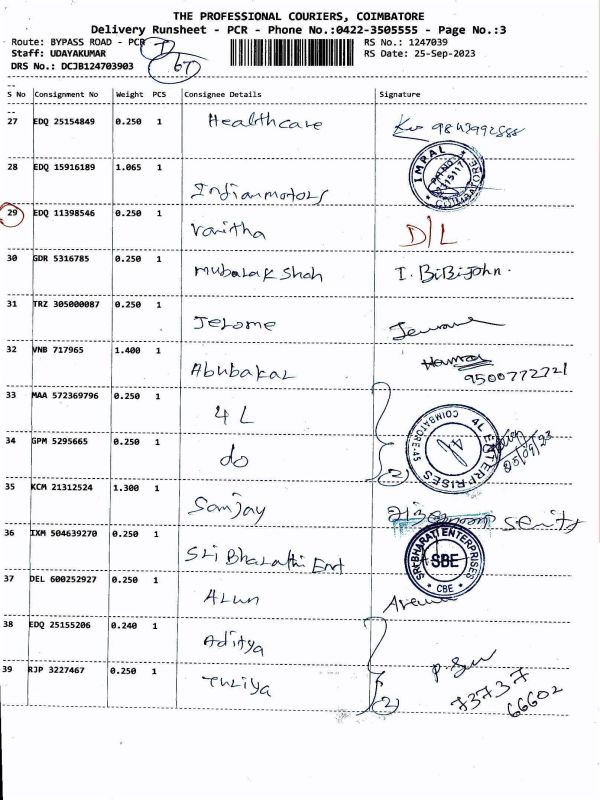 THE PROFESSIONAL COURIERS, COIMBATORE
Delivery Runsheet - PCR - Phone No.:0422-3505555 - Page No.:3
Route: BYPASS ROAD - PCR
RS No.: 1247039
Staff: UDAYAKUMAR
RS Date: 25-Sep-2023
DRS No.: DCJB124703903
S No Consignment No Weight PCS Consignee Details Signature
27 EDQ 25154849 0.250 1 Healthcare 9843992888
28 EDQ 15916189 1.065 1 Indian motors IMPAL COIMBATORE
29 EDQ 11398546 0.250 1 Vanitha D/L
30 GDR 5316785 0.250 1 Mubarak Shah I. BiBiJohn.
31 TRZ 305000087 0.250 1 Jerome
32 VNB 717965 1.400 1 Abubakar 9500772721
33 MAA 572369796 0.250 1 4L
34 GPM 5295665 0.250 1 do (2) 4L ENTERPRISES COIMBATORE-45 25/09/23
35 KCM 21312524 1.300 1 Sanjay
36 IXM 504639270 0.250 1 Sri Bharathi Ent SRI BHARATI ENTERPRISES SBE * CBE *
37 DEL 600252927 0.250 1 Arun
38 EDQ 25155206 0.240 1 Aditya
39 RJP 3227467 0.250 1 Thriya (2) 73737 66602